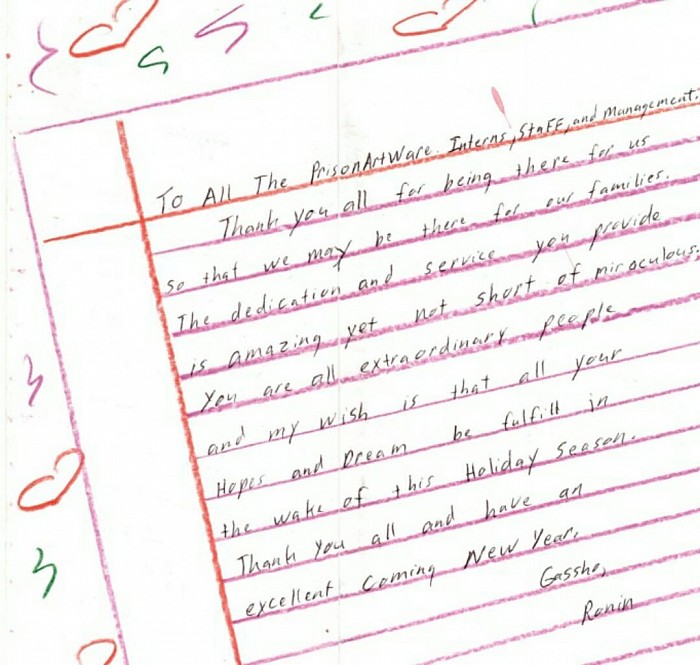 To All The PrisonArtWare Interns, Staff, and Management.
Thank you all for being there for us
so that we may be there for our families.
The dedication and service you provide
is amazing yet not short of miraculous.
You are all extraordinary people
and my wish is that all your
Hopes and Dream be fulfill in
the wake of this Holiday Season.
Thank you all and have an
excellent coming New Year.
Gassho,
Ronin